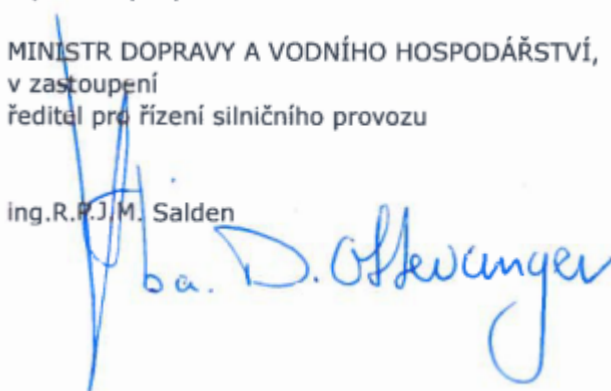 MINISTR DOPRAVY A VODNÍHO HOSPODÁŘSTVÍ,
v zastoupení
ředitel pro řízení silničního provozu
ing.R.P.J.M. Salden
b.a. D. Offevanger